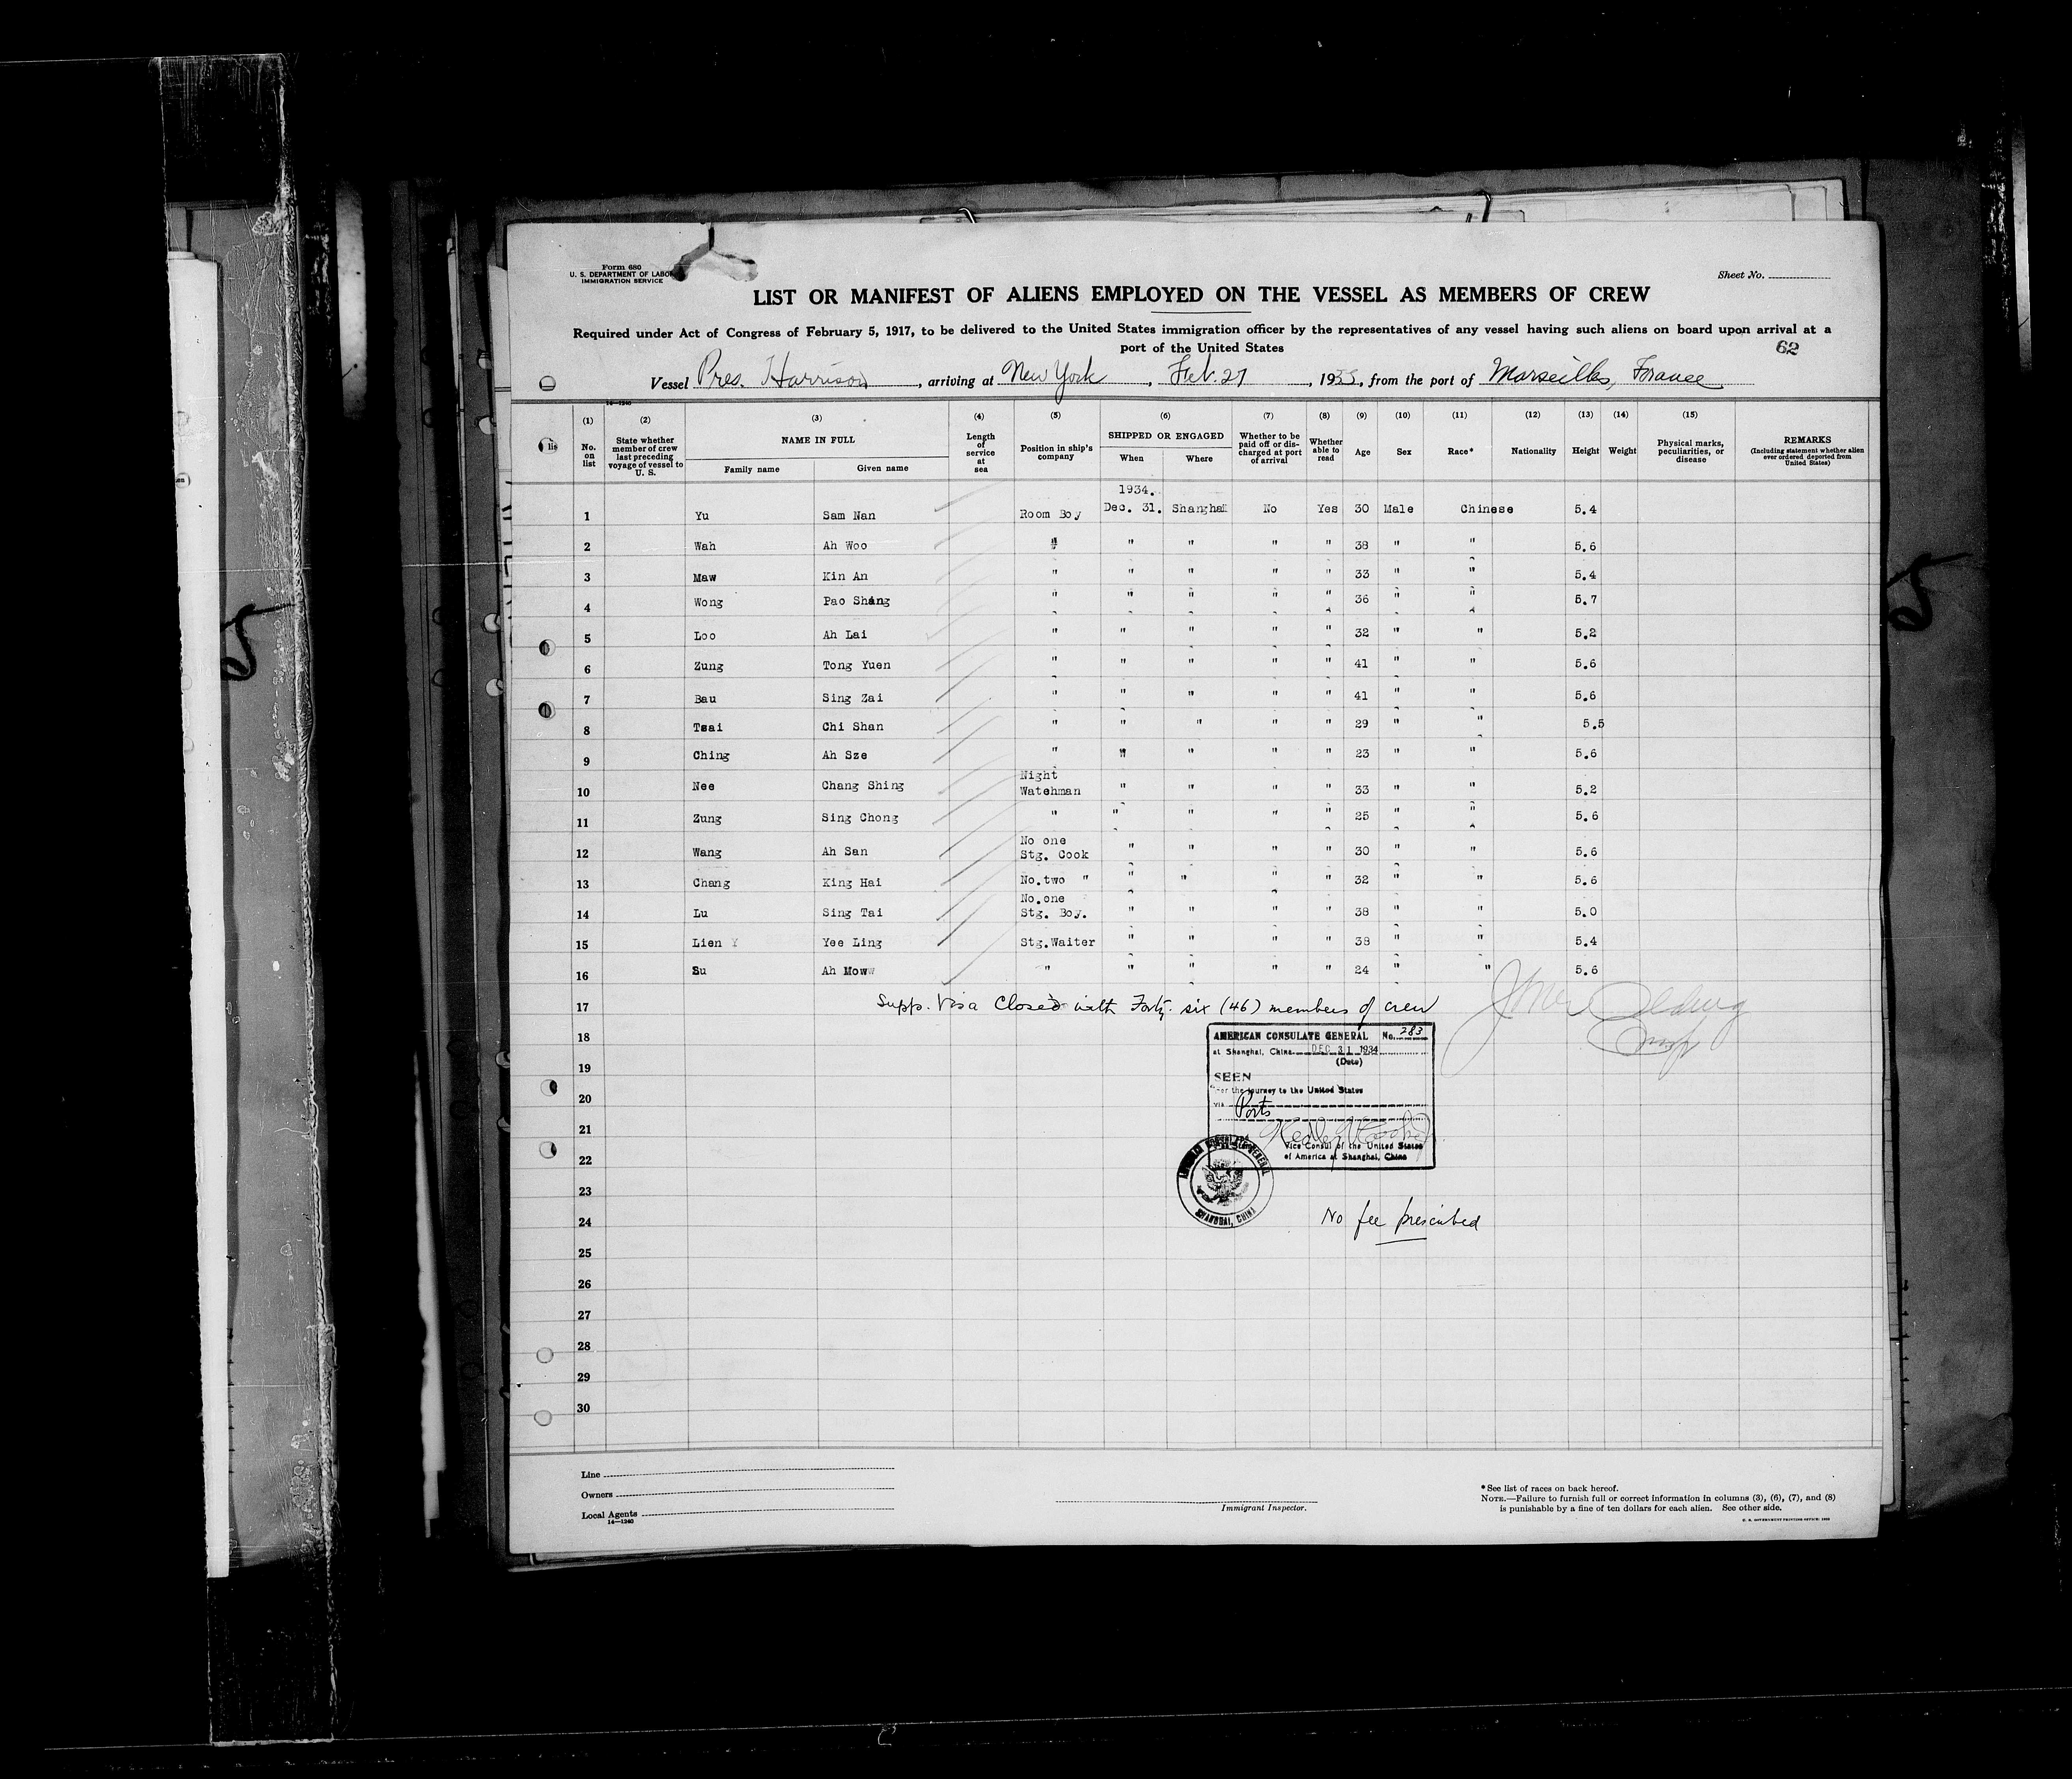 Form 680
U. S. DEPARTMENT OF LABOR
IMMIGRATION SERVICE
Sheet No.
LIST OR MANIFEST OF ALIENS EMPLOYED ON THE VESSEL AS MEMBERS OF CREW
Required under Act of Congress of February 5, 1917, to be delivered to the United States immigration officer by the representatives of any vessel having such aliens on board upon arrival at a
port of the United States
62
Vessel Pres. Harrison, arriving at New York, Feb. 27, 1935, from the port of Marseilles, France
14—1240
(1) (2) (3) (4) (5) (6) (7) (8) (9) (10) (11) (12) (13) (14) (15)
No. on list
State whether member of crew last preceding voyage of vessel to U. S.
NAME IN FULL
Family name Given name
Length of service at sea
Position in ship's company
SHIPPED OR ENGAGED
When Where
Whether to be paid off or discharged at port of arrival
Whether able to read
Age Sex Race* Nationality Height Weight
Physical marks, peculiarities, or disease
REMARKS
(Including statement whether alien ever ordered deported from United States)
1934.
1 Yu Sam Nan Room Boy Dec. 31. Shanghai No Yes 30 Male Chinese 5.4
2 Wah Ah Woo " " " " " 38 " " 5.6
3 Maw Kin An " " " " " 33 " " 5.4
4 Wong Pao Shang " " " " " 36 " " 5.7
5 Loo Ah Lai " " " " " 32 " " 5.2
6 Zung Tong Yuen " " " " " 41 " " 5.6
7 Bau Sing Zai " " " " " 41 " " 5.6
8 Tsai Chi Shan " " " " " 29 " " 5.5
9 Ching Ah Sze " " " " " 23 " " 5.6
10 Nee Chang Shing Night Watchman " " " " 33 " " 5.2
11 Zung Sing Chong " " " " " 25 " " 5.6
12 Wang Ah San No one Stg. Cook " " " " 30 " " 5.6
13 Chang King Hai No.two " " " " " 32 " " 5.6
14 Lu Sing Tai No.one Stg. Boy. " " " " 38 " " 5.0
15 Lien Y Yee Ling Stg.Waiter " " " " 38 " " 5.4
16 Su Ah Moww " " " " " 24 " " 5.6
17 Supp. Visa Closed with Forty-six (46) members of crew
18
19
20
21
22
23
24
25
26
27
28
29
30
AMERICAN CONSULATE GENERAL No. 283
at Shanghai, China DEC 31 1934
(Date)
SEEN
For the journey to the United States
via Ports
Vice Consul of the United States
of America at Shanghai, China
AMERICAN CONSULATE GENERAL
SHANGHAI, CHINA
No fee prescribed
Line
Owners
Local Agents
14—1240
Immigrant Inspector.
* See list of races on back hereof.
NOTE.—Failure to furnish full or correct information in columns (3), (6), (7), and (8)
is punishable by a fine of ten dollars for each alien. See other side.